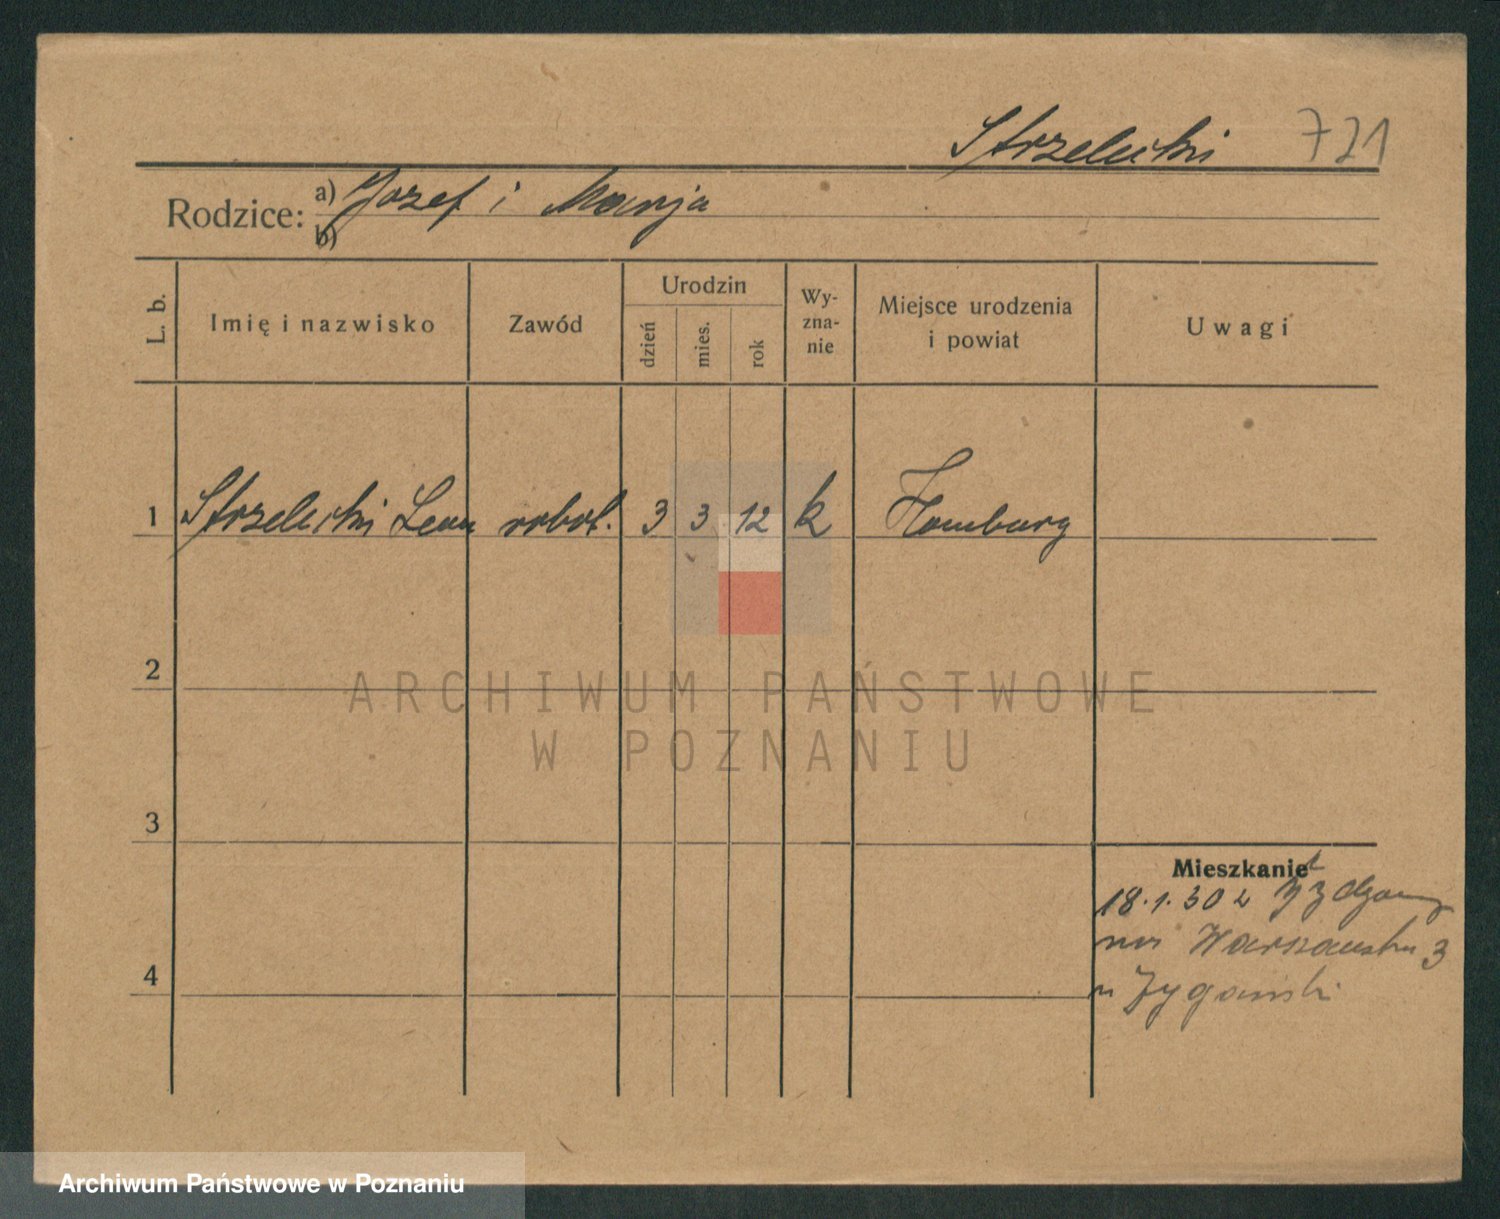 Strzelecki 721
Rodzice: a) Jozef i Marja
b)
L. b.
Imię i nazwisko
Zawód
Urodzin
dzień
mies.
rok
Wy-
zna-
nie
Miejsce urodzenia
i powiat
Uwagi
1 Strzelecki Leon robot. 3 3 12 k Hamburg
2
ARCHIWUM PAŃSTWOWE
W POZNANIU
3
Mieszkanie
18.1.30 z
Warszawska 3
4
Archiwum Państwowe w Poznaniu